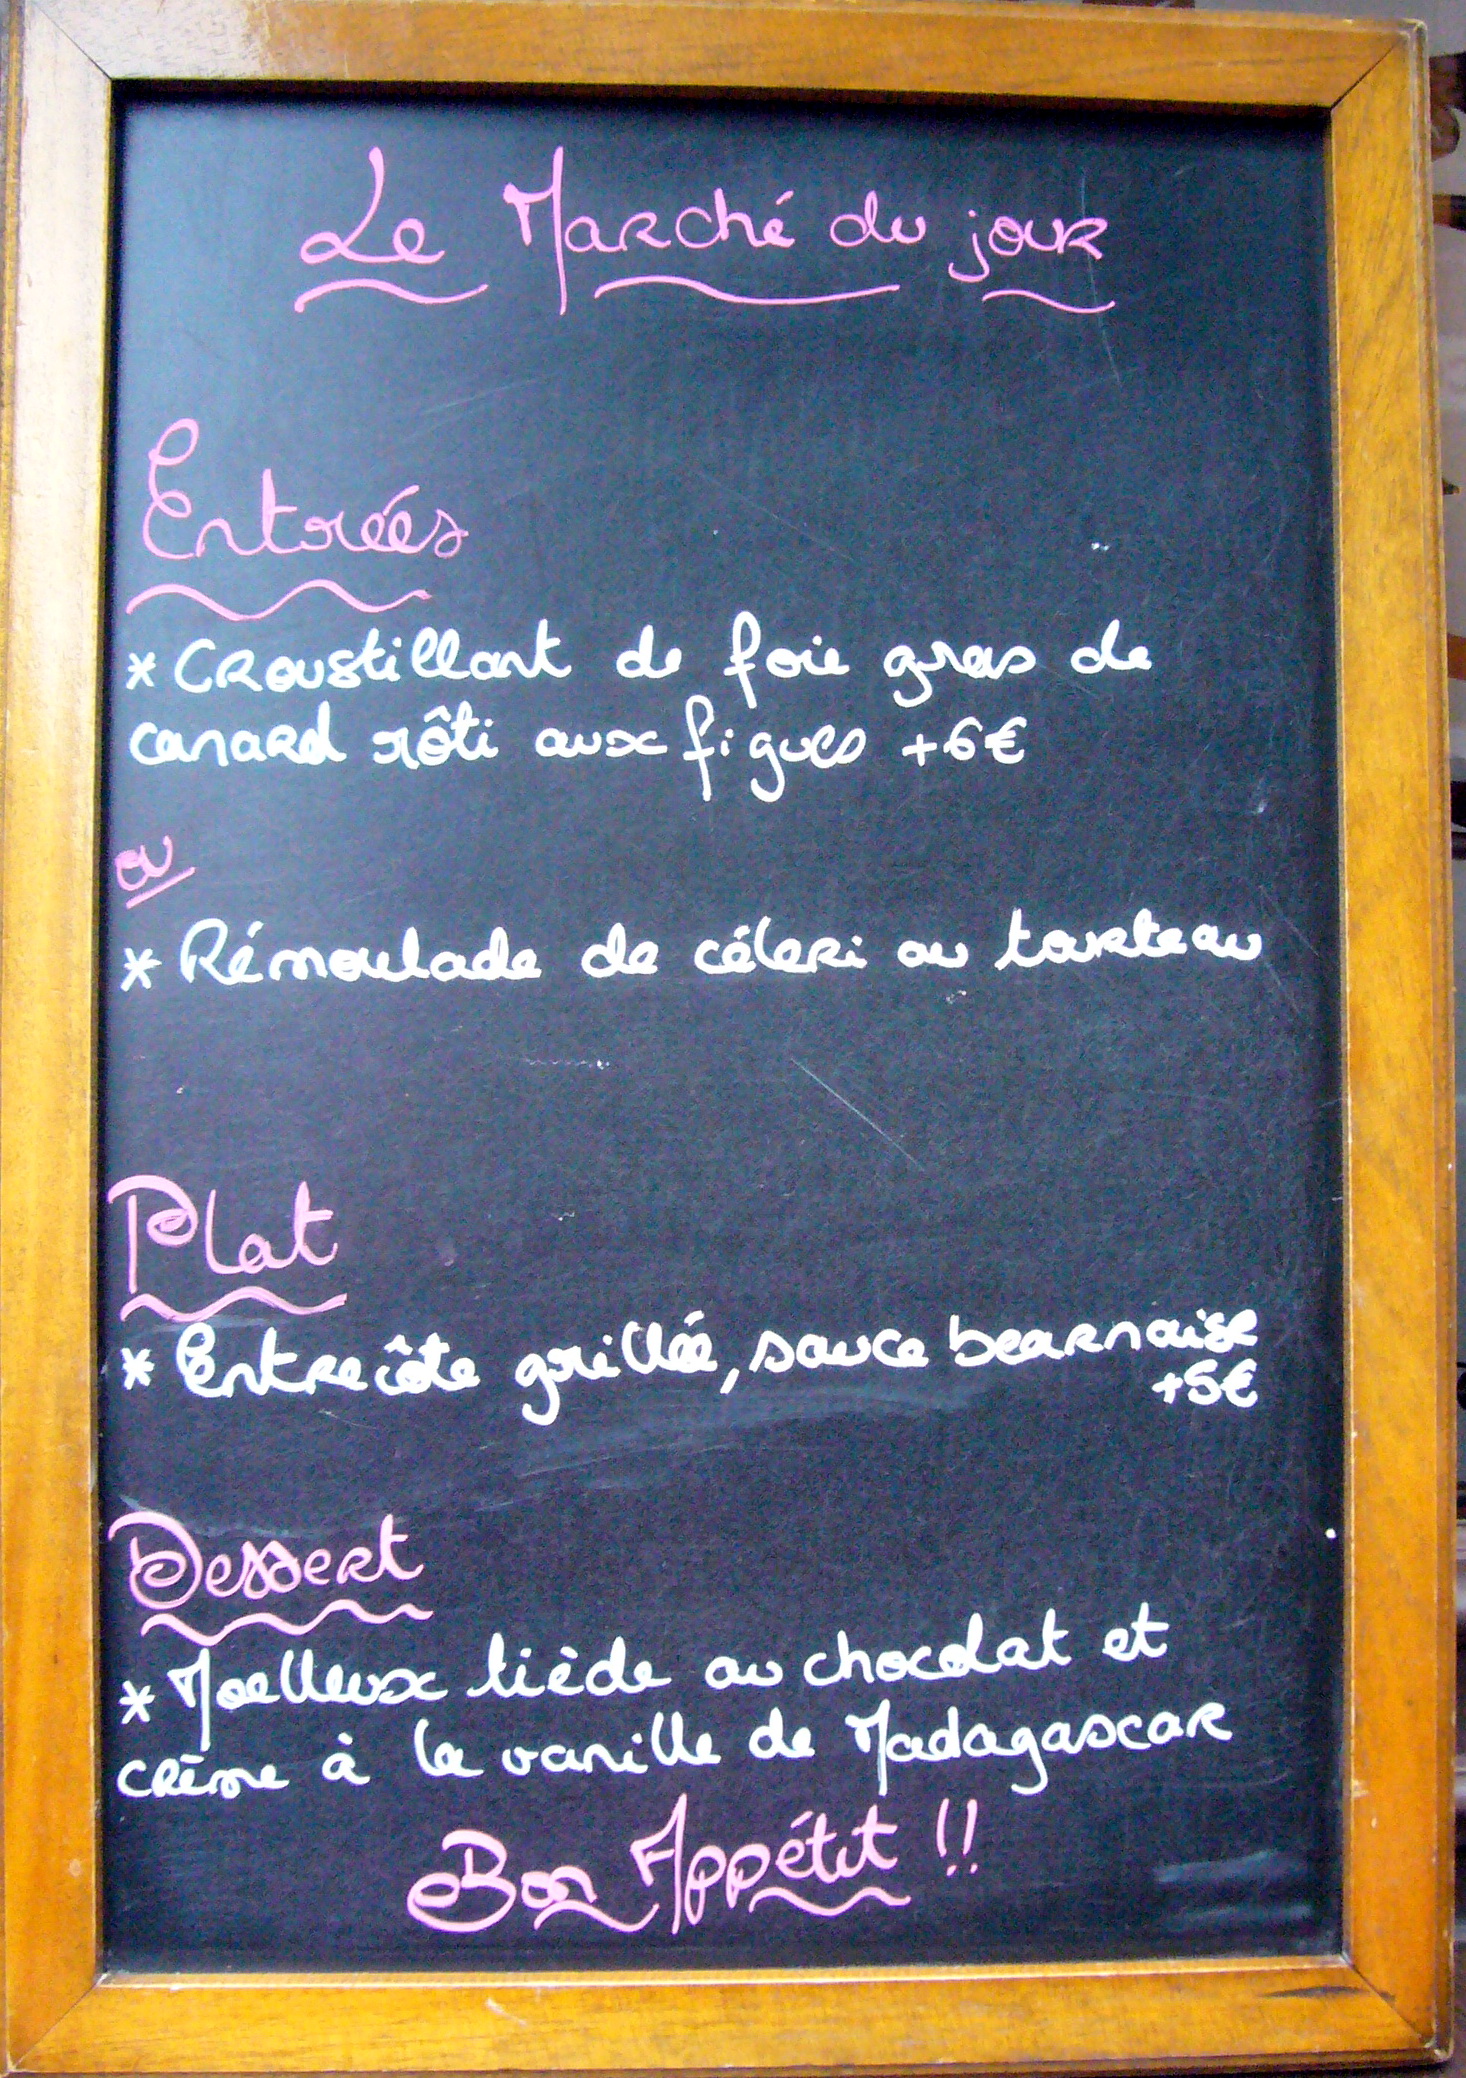 Le Marché du jour
Entrées
* Croustillant de foie gras de
canard rôti aux figues +6€
ou
* Rémoulade de céleri au tourteau
Plat
* Entrecôte grillée, sauce bearnaise
+5€
Dessert
* Moelleux tiède au chocolat et
crème à la vanille de Madagascar
Bon Appétit !!